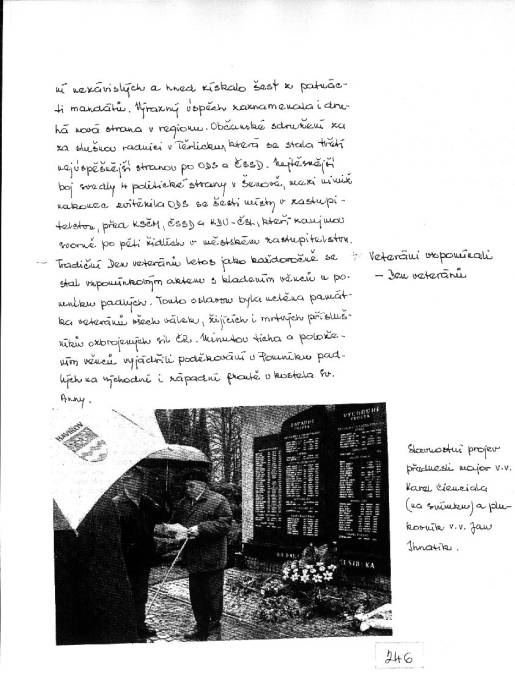 ní nezávislých a hned získalo šest z patnác-
ti mandátů. Výrazný úspěch zaznamenala i dru-
há nová strana v regionu. Občanské sdružení za
za slušnou radnici v Těrlicku, která se stala třetí
nejúspěšnější stranou po ODS a ČSSD. Nejtěsnější
boj svedly 4 politické strany v Šenově, mezi nimiž
nakonec zvítězila ODS se šesti místy v zastupi-
telstvu, před KSČM, ČSSD a KDU-ČSL, kteří zaujmou
svorně po pěti židlích v městském zastupitelstvu.
Tradiční Den veteránů letos jako každoročně se
stal vzpomínkovým aktem s kladením věnců u po-
mníku padlých. Touto oslavou byla uctěna památ-
ka veteránů všech válek, žijících i mrtvých přísluš-
níků ozbrojených sil ČR. Minutou ticha a polože-
ním věnců vyjádřili poděkování u Pomníku pad-
lých na východní i západní frontě u kostela sv.
Anny.
Veteráni vzpomínali
– Den veteránů
HAVÍŘOV
ZÁPADNÍ
FRONTA
VÝCHODNÍ
FRONTA
Slavnostní projev
přednesl major v.v.
Karel Cienciala
(na snímku) a plu-
kovník v.v. Jan
Ihnatík.
246